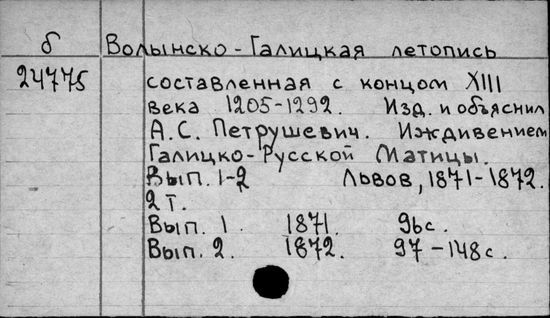 б Волынско-Галицкая летопись
24775 составленная с концом XIII
века 1205-1292. Изд. и объяснил
А.С. Петрушевич. Иждивением
Галицко-Русской Матицы.
Вып. 1-2 Львов, 1871-1872.
2 т.
Вып. 1. 1871. 96 с.
Вып. 2. 1872. 97-148 с.